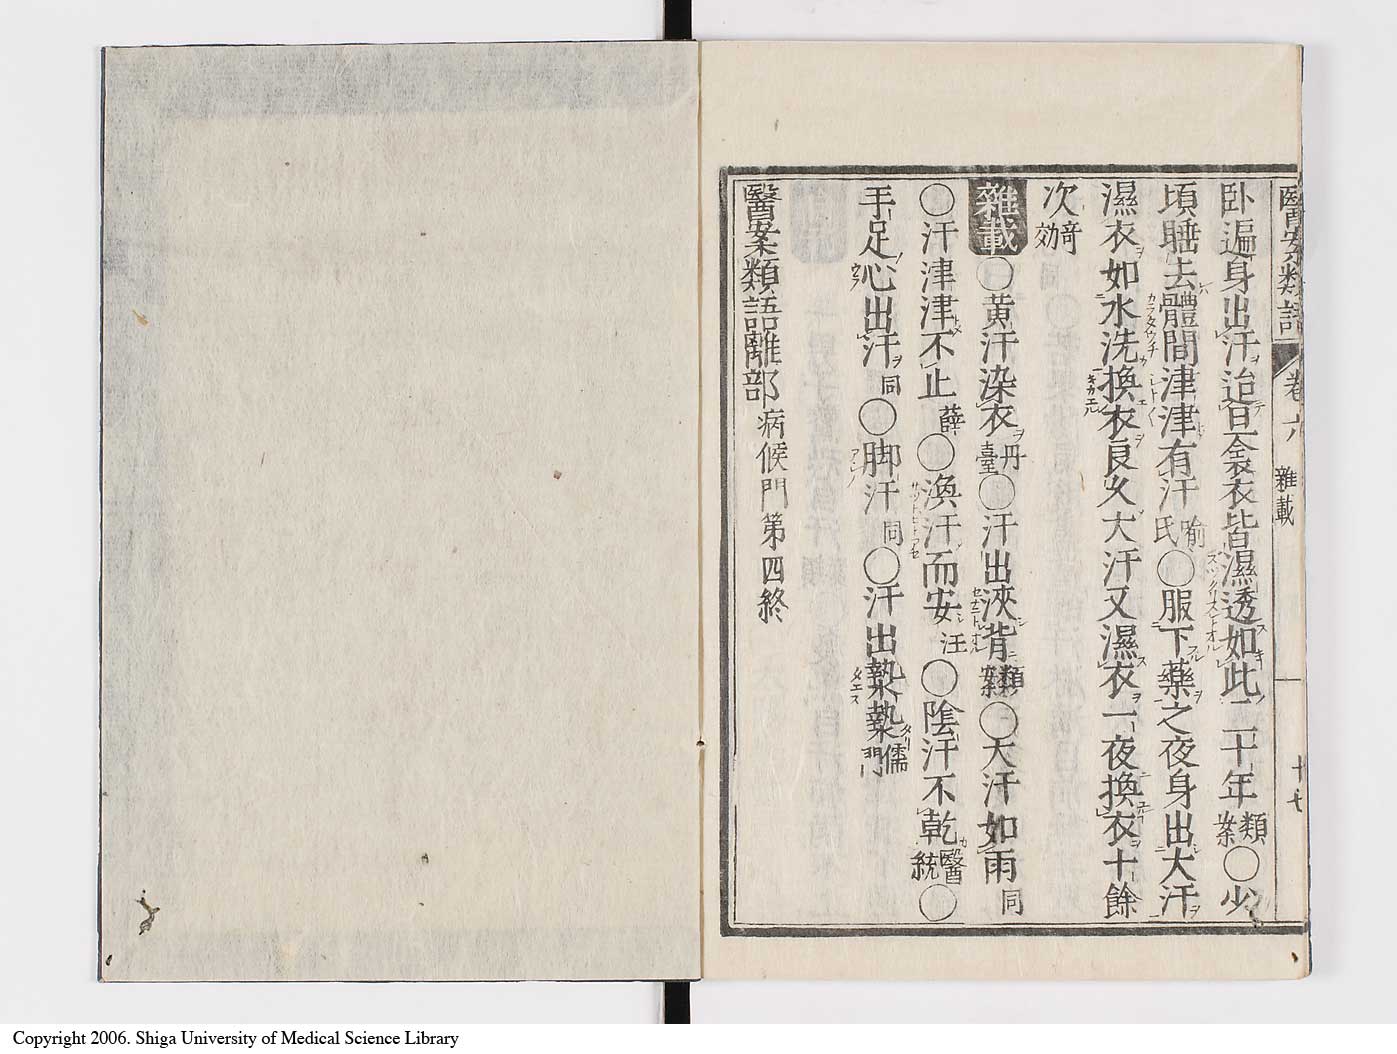 醫案類語 卷六 雜載 十七
卧遍身出汗迨旦衾衣皆濕透如此二十年類案〇少
頃睡去體間津津有汗喻氏〇服下藥之夜身出大汗
濕衣如水洗換衣良久大汗又濕衣一夜換衣十餘
次奇効
雜載〇黃汗染衣丹臺〇汗出浹背類案〇大汗如雨同
〇汗津津不止薛〇渙汗而安汪〇陰汗不乾醫統〇
手足心出汗同〇脚汗同〇汗出漐漐儒門
醫案類語離部病候門第四終
Copyright 2006. Shiga University of Medical Science Library